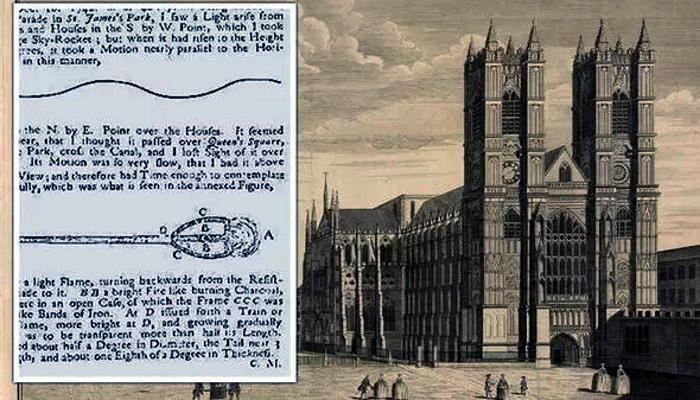 arade in St. James's Park, I saw a Light arise from
s and Houses in the S. by W. Point, which I took
ge Sky-Rocket; but when it had risen to the Height
rees, it took a Motion nearly parallel to the Hori-
in this manner,
the N. by E. Point over the Houses. It seemed
ear, that I thought it passed over Queen's Square,
Park, cross the Canal, and I lost Sight of it over
Its Motion was so very slow, that I had it above
View; and therefore had Time enough to contemplate
ully, which was what is seen in the annexed Figure,
C
D B A
B
C
a light Flame, turning backwards from the Resist-
ade to it. BB a bright Fire like burning Charcoal,
ere in an open Case, of which the Frame CCC was
ike Bands of Iron. At D issued forth a Train or
lame, more bright at D, and growing gradually
as to be transparent more than half its Length.
d about half a Degree in Diameter, the Tail near 3
gth, and about one Eighth of a Degree in Thickness.
C. M.